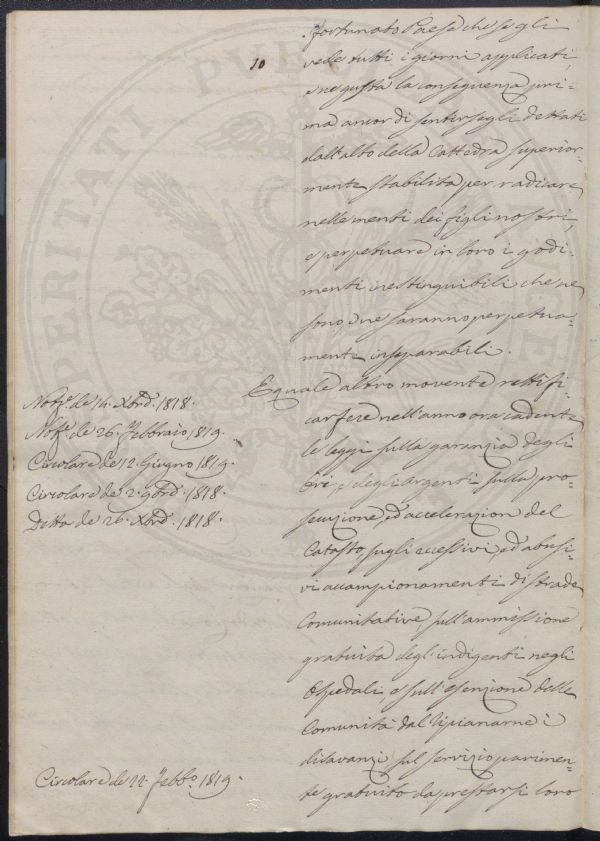 10
fortunato Paese che se gli
vede tutti i giorni applicati,
e ne gusta la conseguenza pri=
ma ancor di sentirsegli dettati
dall'alto della Cattedra superior=
mente stabilita per radicare
nelle menti dei figli nostri,
e perpetuare in loro i godi=
menti inestinguibili che ne
sono, e ne saranno perpetua=
mente inseparabili.
E quale altro movente rettifi=
car fece nell'anno ora cadente
le leggi sulla garanzia degli
Ori, e degli Argenti sulla pro=
secuzione, ed accelerazion del
Catasto, sugli eccessivi, ed abusi=
vi accampionamenti di strade
Comunitative, sull'ammissione
gratuita degl'indigenti negli
Ospedali, e sull'esenzione delle
Comunità dal ripianarne i
disavanzi sul servizio parimen=
te gratuito da prestarsi loro
Notif.e de 14. Xbre 1818.
Notif.e de 26. Febbraio 1819.
Circolare de 12. Giugno 1819.
Circolare de 2. 9bre 1818.
Detta de 26. Xbre 1818.
Circolare de 22. Febb.o 1819.
PERITATI PUBL